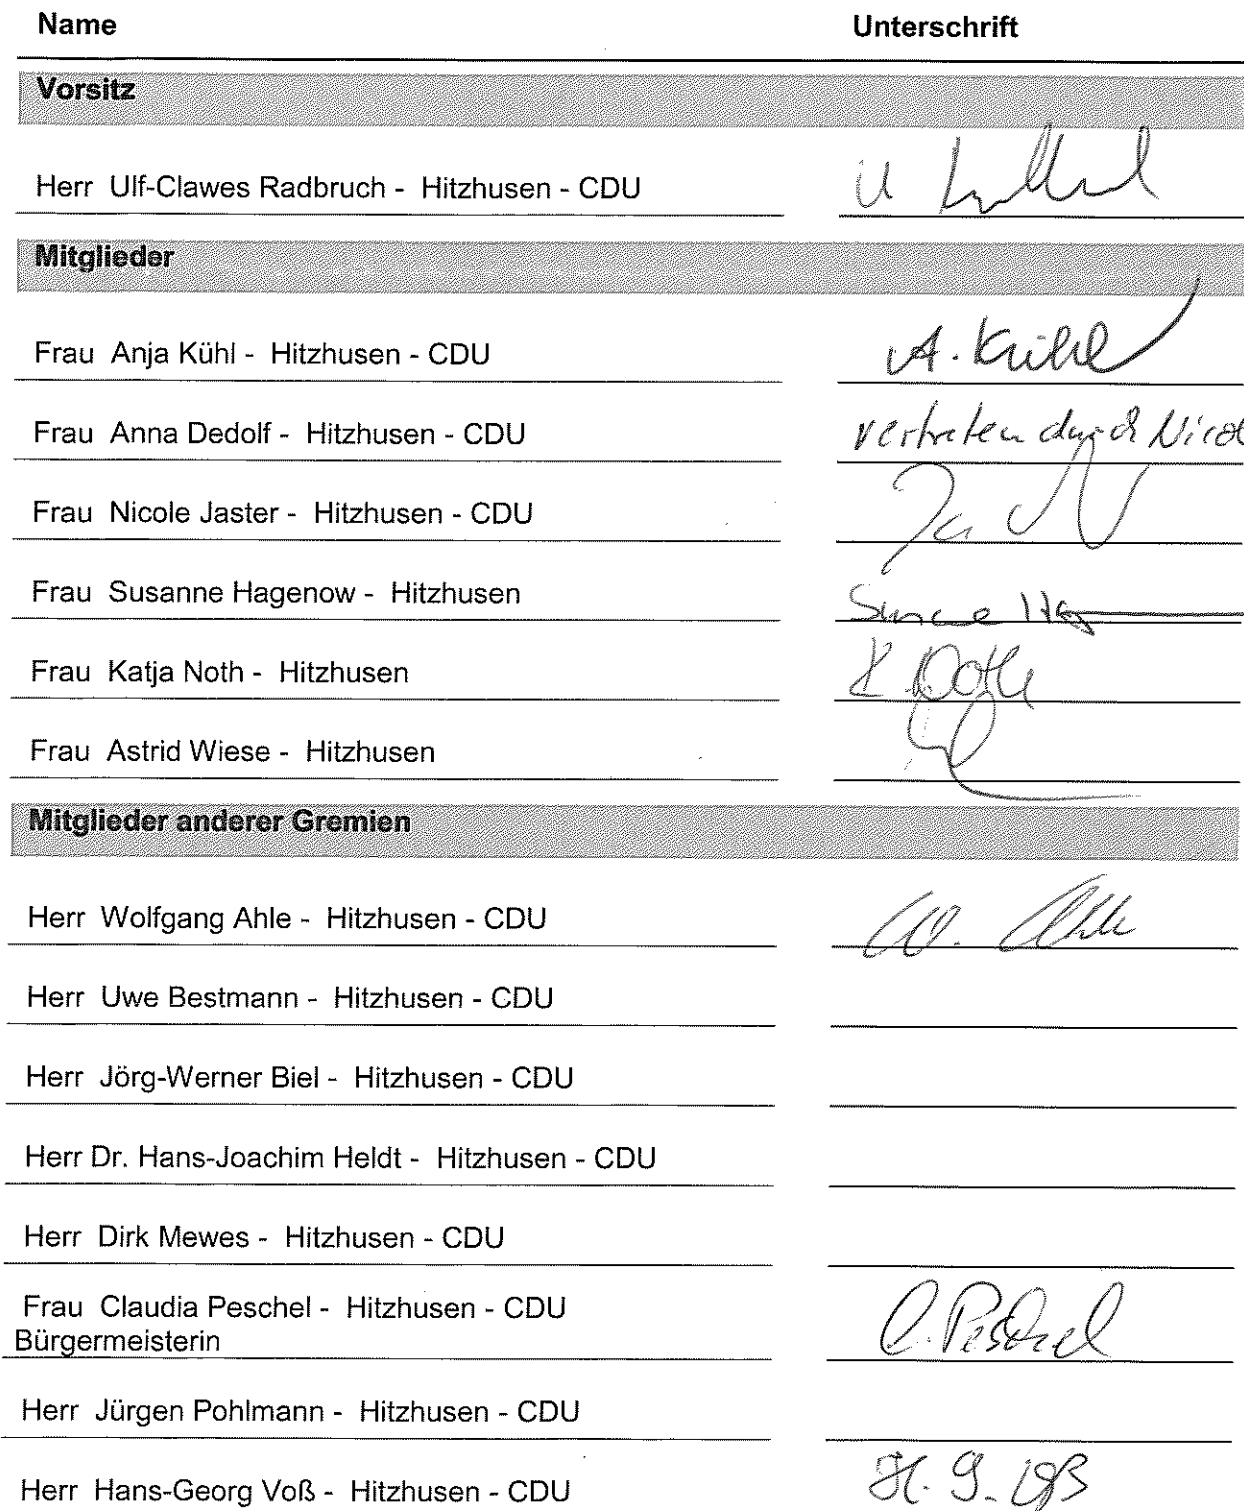 Name Unterschrift
Vorsitz
Herr Ulf-Clawes Radbruch - Hitzhusen - CDU
Mitglieder
Frau Anja Kühl - Hitzhusen - CDU A. Kühl
Frau Anna Dedolf - Hitzhusen - CDU vertreten durch Nicol
Frau Nicole Jaster - Hitzhusen - CDU
Frau Susanne Hagenow - Hitzhusen
Frau Katja Noth - Hitzhusen K. Noth
Frau Astrid Wiese - Hitzhusen
Mitglieder anderer Gremien
Herr Wolfgang Ahle - Hitzhusen - CDU W. Ahle
Herr Uwe Bestmann - Hitzhusen - CDU
Herr Jörg-Werner Biel - Hitzhusen - CDU
Herr Dr. Hans-Joachim Heldt - Hitzhusen - CDU
Herr Dirk Mewes - Hitzhusen - CDU
Frau Claudia Peschel - Hitzhusen - CDU C. Peschel
Bürgermeisterin
Herr Jürgen Pohlmann - Hitzhusen - CDU
Herr Hans-Georg Voß - Hitzhusen - CDU H. G. Voß